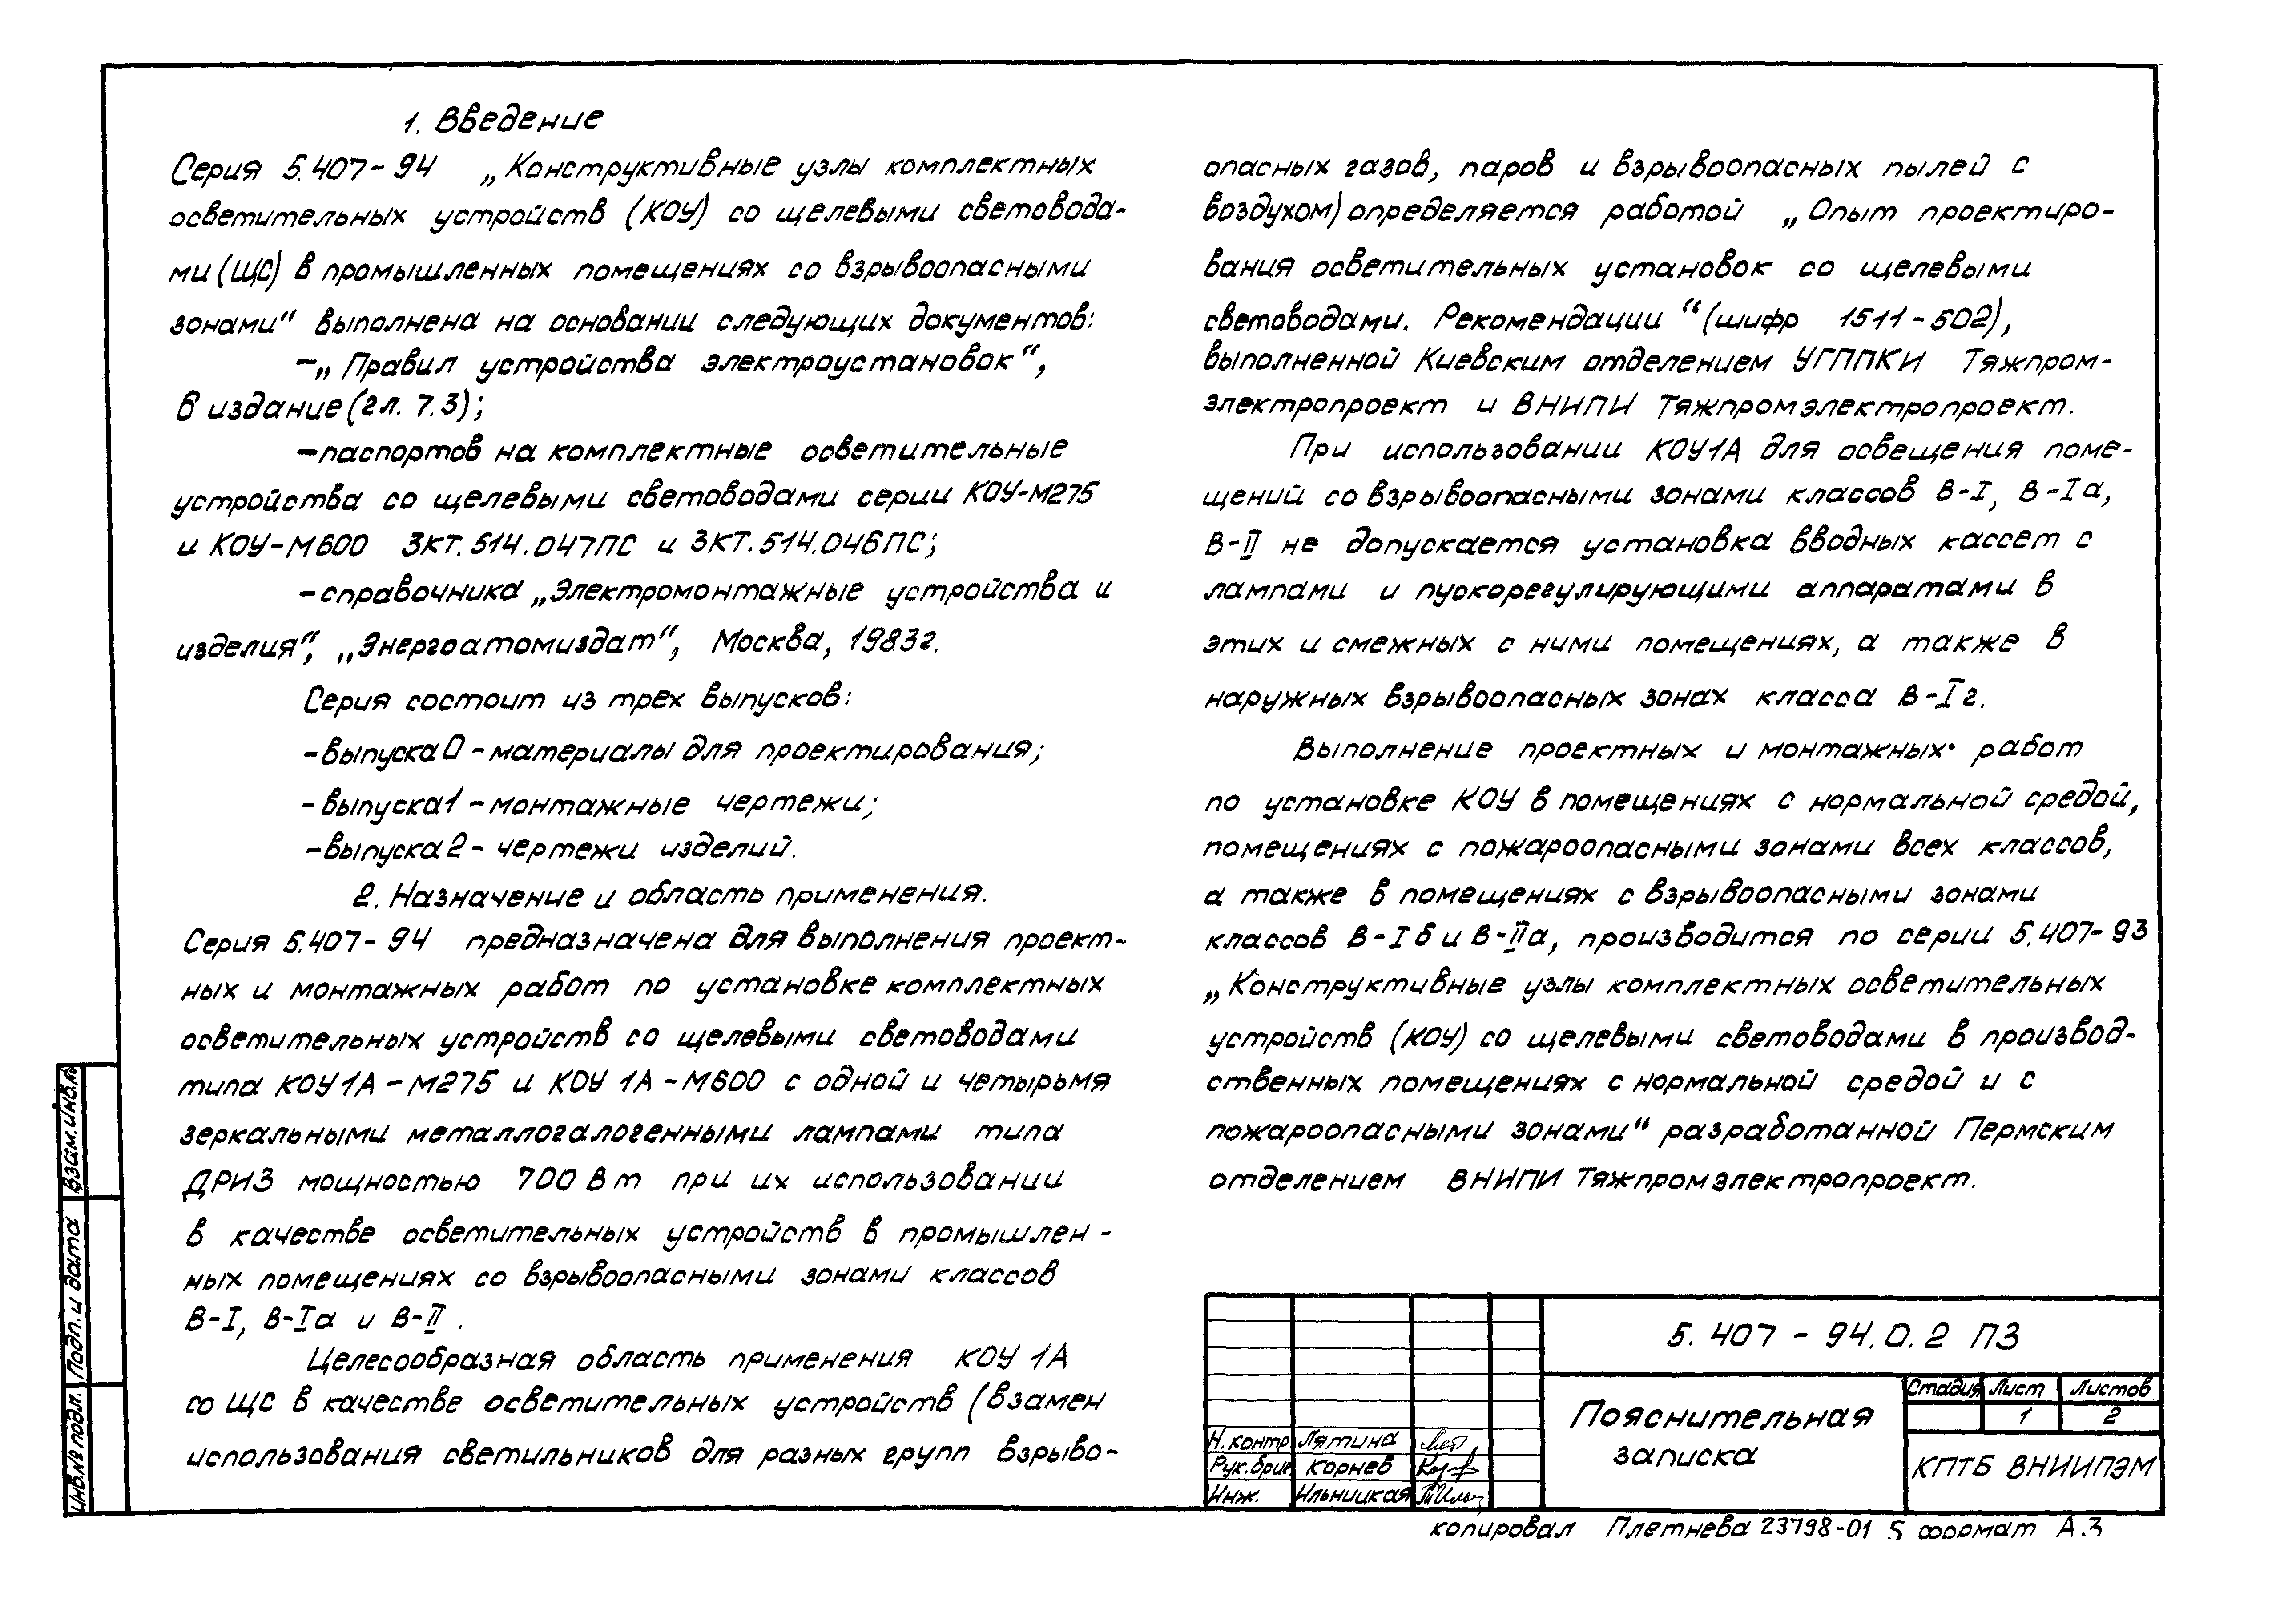 1. Введение
Серия 5.407-94 „Конструктивные узлы комплектных
осветительных устройств (КОУ) со щелевыми световода-
ми (ЩС) в промышленных помещениях со взрывоопасными
зонами“ выполнена на основании следующих документов:
–„Правил устройства электроустановок“,
6 издание (гл. 7.3);
–паспортов на комплектные осветительные
устройства со щелевыми световодами серии КОУ-М275
и КОУ-М600 3КТ.514.047ПС и 3КТ.514.046ПС;
–справочника „Электромонтажные устройства и
изделия“, „Энергоатомиздат“, Москва, 1983г.
Серия состоит из трех выпусков:
-выпуска 0 - материалы для проектирования;
-выпуска 1 - монтажные чертежи;
-выпуска 2 - чертежи изделий.
2. Назначение и область применения.
Серия 5.407-94 предназначена для выполнения проект-
ных и монтажных работ по установке комплектных
осветительных устройств со щелевыми световодами
типа КОУ1А-М275 и КОУ 1А-М600 с одной и четырьмя
зеркальными металлогалогенными лампами типа
ДРИЗ мощностью 700 Вт при их использовании
в качестве осветительных устройств в промышлен-
ных помещениях со взрывоопасными зонами классов
В-I, В-Iа и В-II.
Целесообразная область применения КОУ 1А
со ЩС в качестве осветительных устройств (взамен
использования светильников для разных групп взрыво-
опасных газов, паров и взрывоопасных пылей с
воздухом) определяется работой „Опыт проектиро-
вания осветительных установок со щелевыми
световодами. Рекомендации“ (шифр 1511-502),
выполненной Киевским отделением УГППКИ Тяжпром-
электропроект и ВНИПИ Тяжпромэлектропроект.
При использовании КОУ1А для освещения поме-
щений со взрывоопасными зонами классов В-I, В-Iа,
В-II не допускается установка вводных кассет с
лампами и пускорегулирующими аппаратами в
этих и смежных с ними помещениях, а также в
наружных взрывоопасных зонах класса В-Iг.
Выполнение проектных и монтажных работ
по установке КОУ в помещениях с нормальной средой,
помещениях с пожароопасными зонами всех классов,
а также в помещениях с взрывоопасными зонами
классов В-Iб и В-IIа, производится по серии 5.407-93
„Конструктивные узлы комплектных осветительных
устройств (КОУ) со щелевыми световодами в производ-
ственных помещениях с нормальной средой и с
пожароопасными зонами“ разработанной Пермским
отделением ВНИПИ Тяжпромэлектропроект.
Взам.инв.№
Подп. и дата
Инв.№ подл.
5.407-94.0.2 ПЗ
Пояснительная
записка
Стадия Лист Листов
1 2
КПТБ ВНИИПЭМ
Н.контр. Лятина
Рук.бриг. Корнев
Инж. Ильницкая
копировал Плетнева 23798-01 5 формат А3